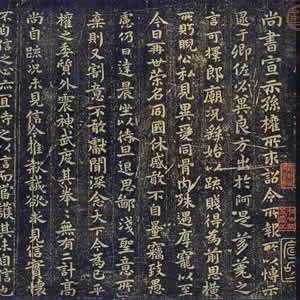 尚書宣示孫權所求詔令所報所以博示
逮于卿佐必冀良方出於阿是芻蕘之
言可擇郎廟況繇始以疏賤得為前恩橫
所盼睨公私見異愛同骨肉殊遇厚寵以至
今日再世榮名同國休慼敢不自量竊致愚
慮仍日達晨坐以待旦退思鄙淺聖意所
棄則又割意不敢獻聞深念天下今為已平
權之委質外震神武度其拳拳無有二計高
尚自疏況未見信今推款誠欲求見信實懷
不自信之心亦宜待之以信而當護其未自信也